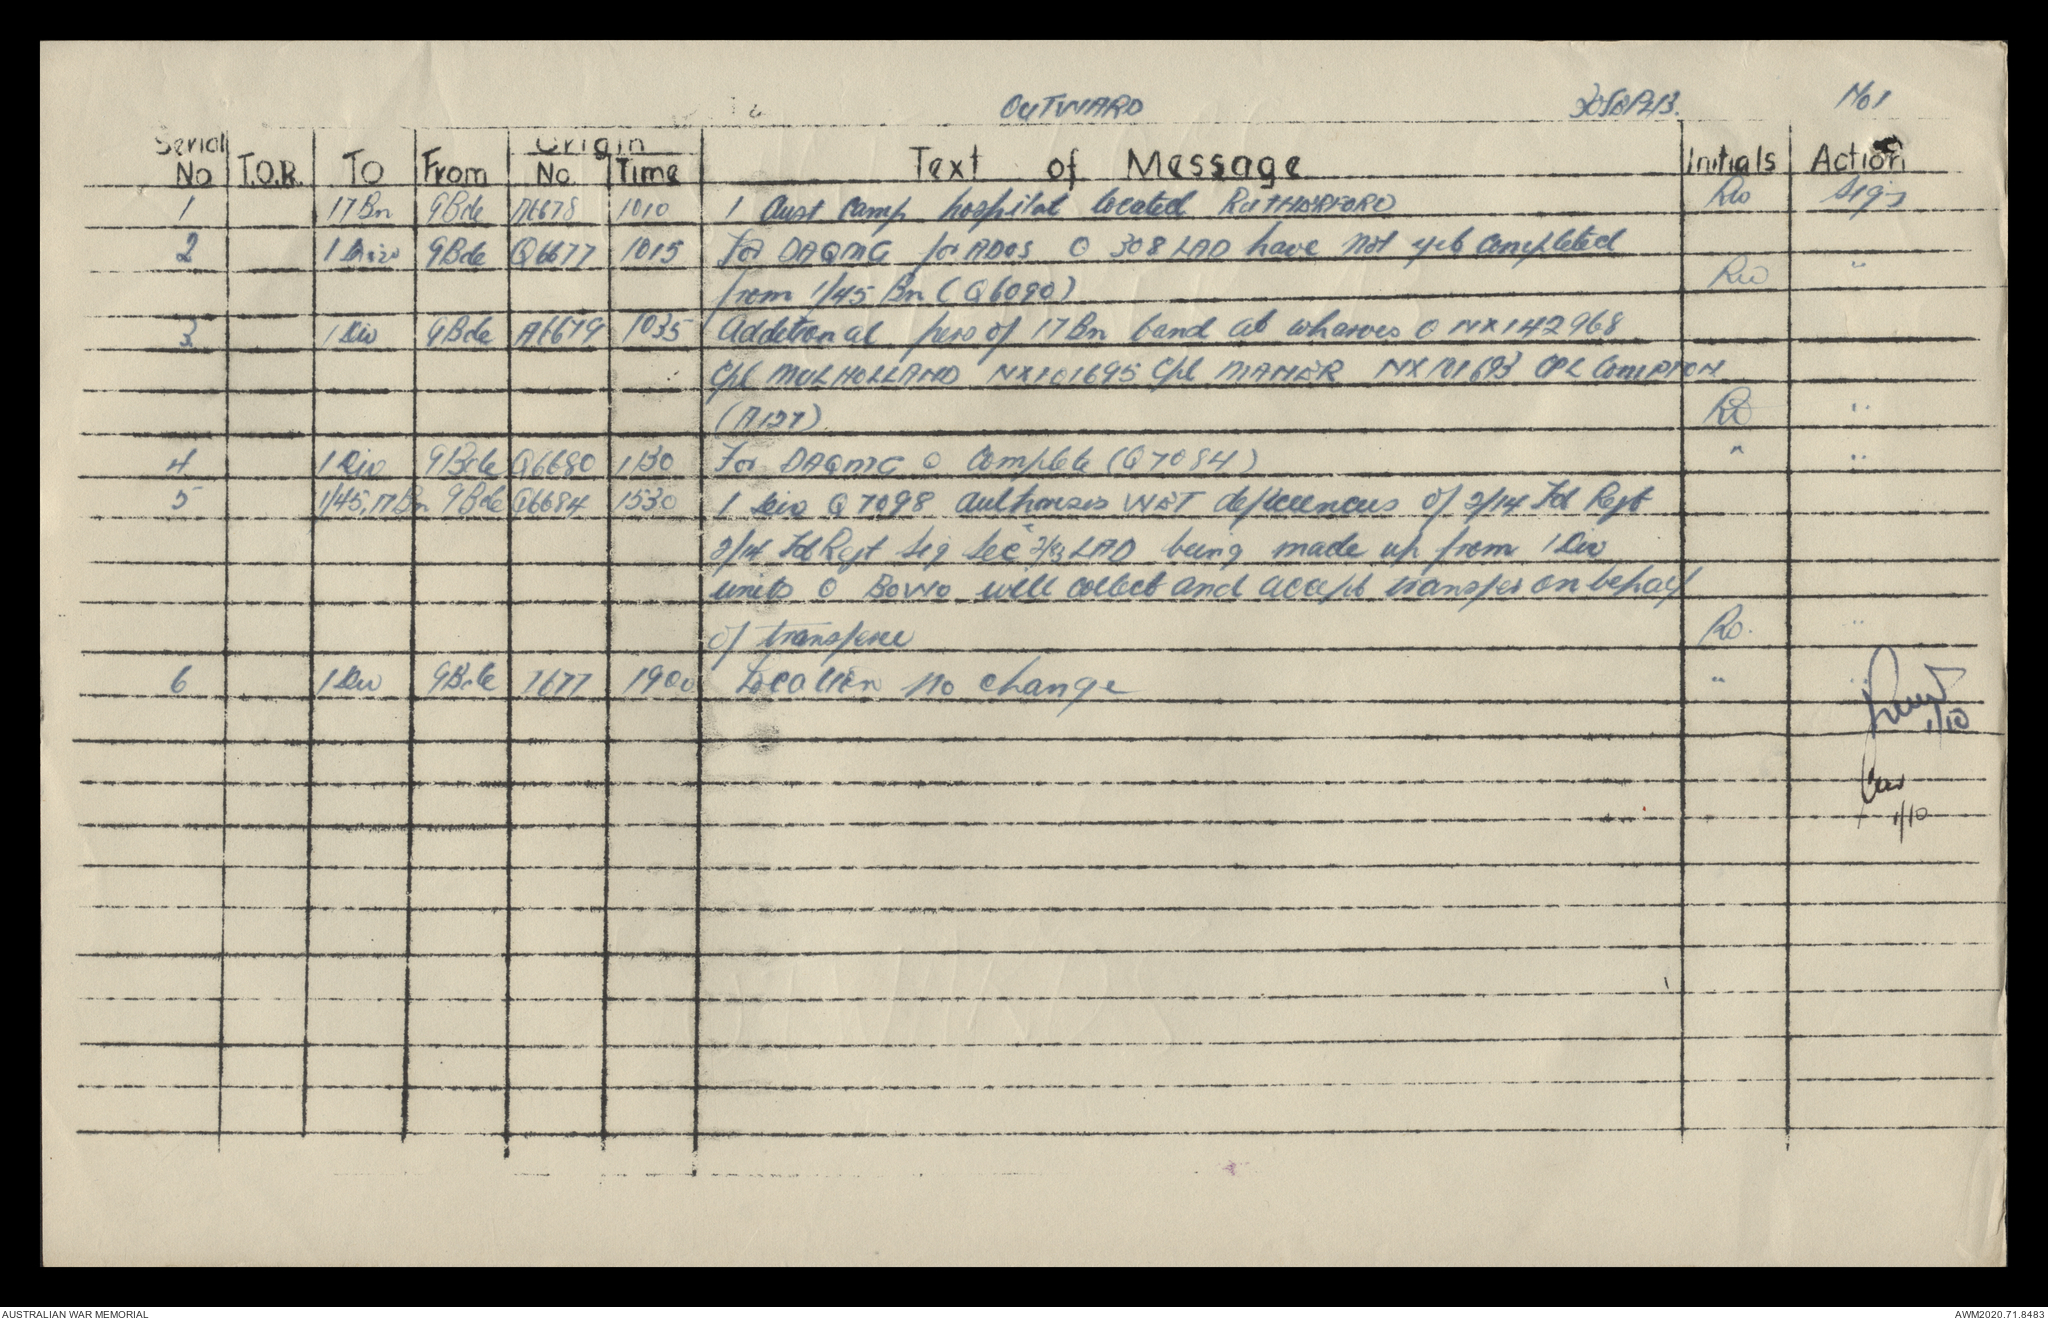 OUTWARD 30 SEP 43. No 1
Serial No T.O.R. To From Origin No. Time Text of Message Initials Action
1 17 Bn 9Bde A6678 1010 1 Aust Camp hospital located RUTHERFORD RW Sigs
2 1 Div 9Bde Q6677 1015 For DAQMG for ADOS O 308 LAD have not yet completed
from 1/45 Bn (Q6090) RW "
3 1 Div 9Bde A6679 1035 Additional pers of 17 Bn band at wharves O NX142968
Cpl MULHOLLAND NX101695 Cpl MAHER CPL COMPTON
(A127) "
4 1 Div 9Bde Q6680 1130 For DAQMG O Complete (Q7084) " "
5 1/45, 17 Bn 9Bde Q6684 1530 1 Div Q7098 authorises WET deficiencies of 2/14 Fd Regt
2/14 Fd Regt Sig Sec LAD being made up from 1 Div
units O BOWO will collect and accept transfer on behalf
of transferee "
6 1 Div 9Bde 1677 1900 Location no change " "
1/10
1/10
AUSTRALIAN WAR MEMORIAL AWM2020.71.8483